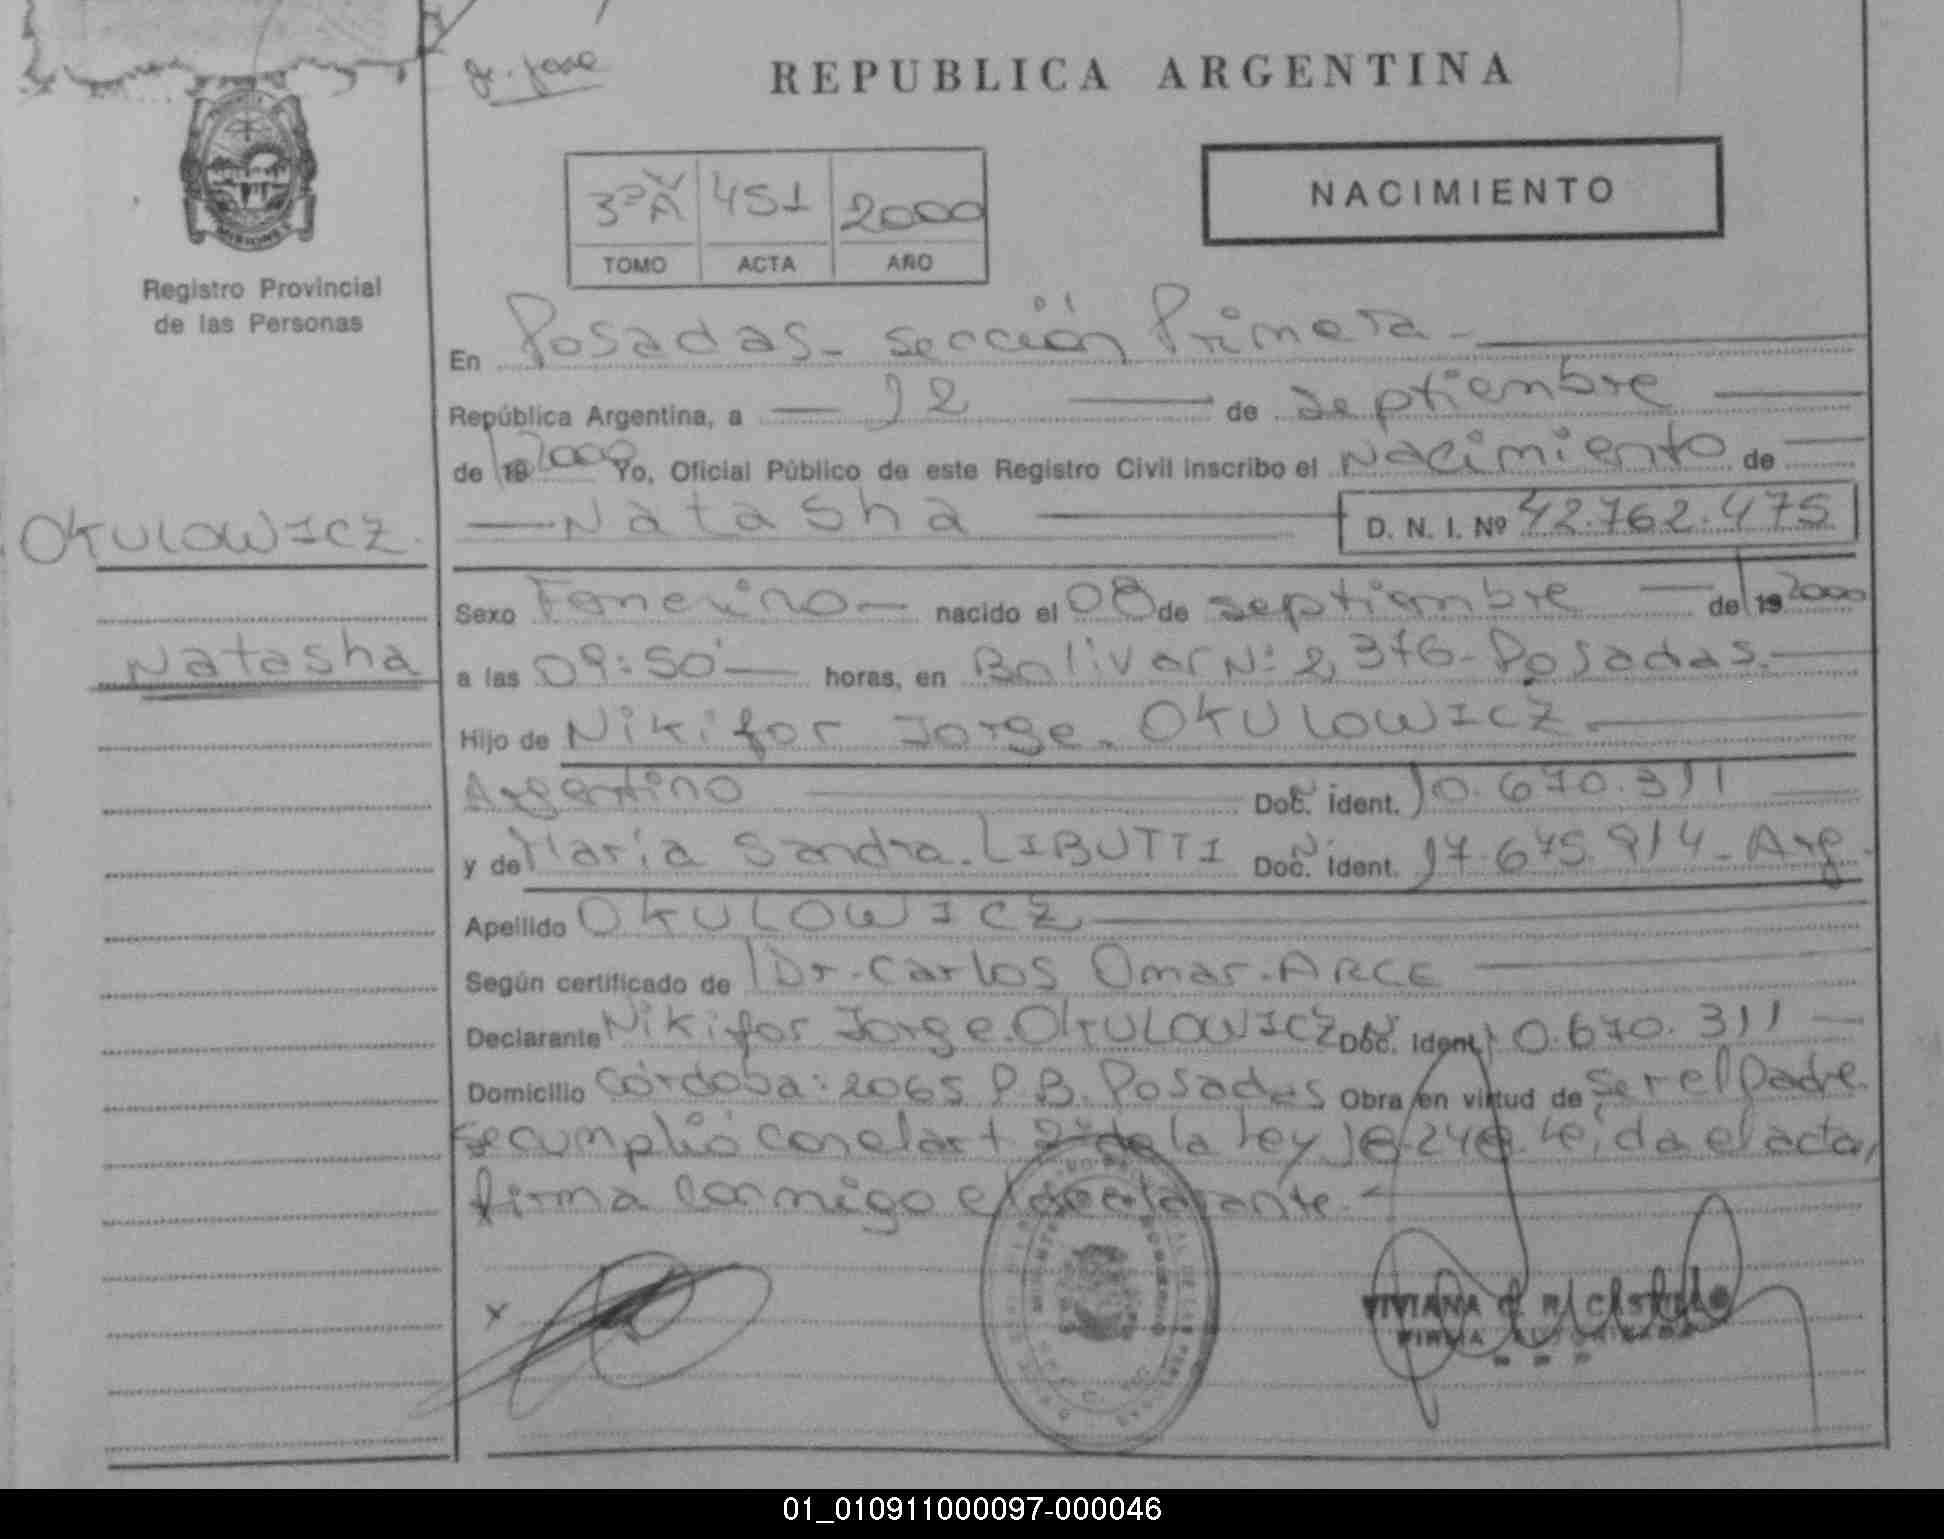 Gr. José
REPUBLICA ARGENTINA
3º A 451 2000
TOMO ACTA AÑO
NACIMIENTO
MISIONES
Registro Provincial
de las Personas
En Posadas - sección Primera -
República Argentina, a 12 de septiembre
de 19 2000 Yo, Oficial Público de este Registro Civil inscribo el Nacimiento de
Natasha D. N. I. Nº 42.762.475
OKULOWICZ
Sexo Femenino nacido el 08 de septiembre de 19 2000
Natasha
a las 09:50 horas, en Bolivar Nº 2,376 - Posadas.-
Hijo de Nikifor Jorge. OKULOWICZ
Argentino Doc. Ident. 10.670.311
y de María Sandra. LIBUTTI Doc. Ident. 17.675.914 - Arg.
Apellido OKULOWICZ
Según certificado de Dr. Carlos Omar. ARCE
Declarante Nikifor Jorge. OKULOWICZ Doc. Ident. 10.670.311
Domicilio Córdoba: 2065 P.B. Posadas Obra en virtud de ser el Padre.
se cumplió con el art 2º de la Ley 18.248. Leída el acta,
firma conmigo el declarante.-
x
VIVIANA
FIRMA AUTORIZADA
01_010911000097-000046